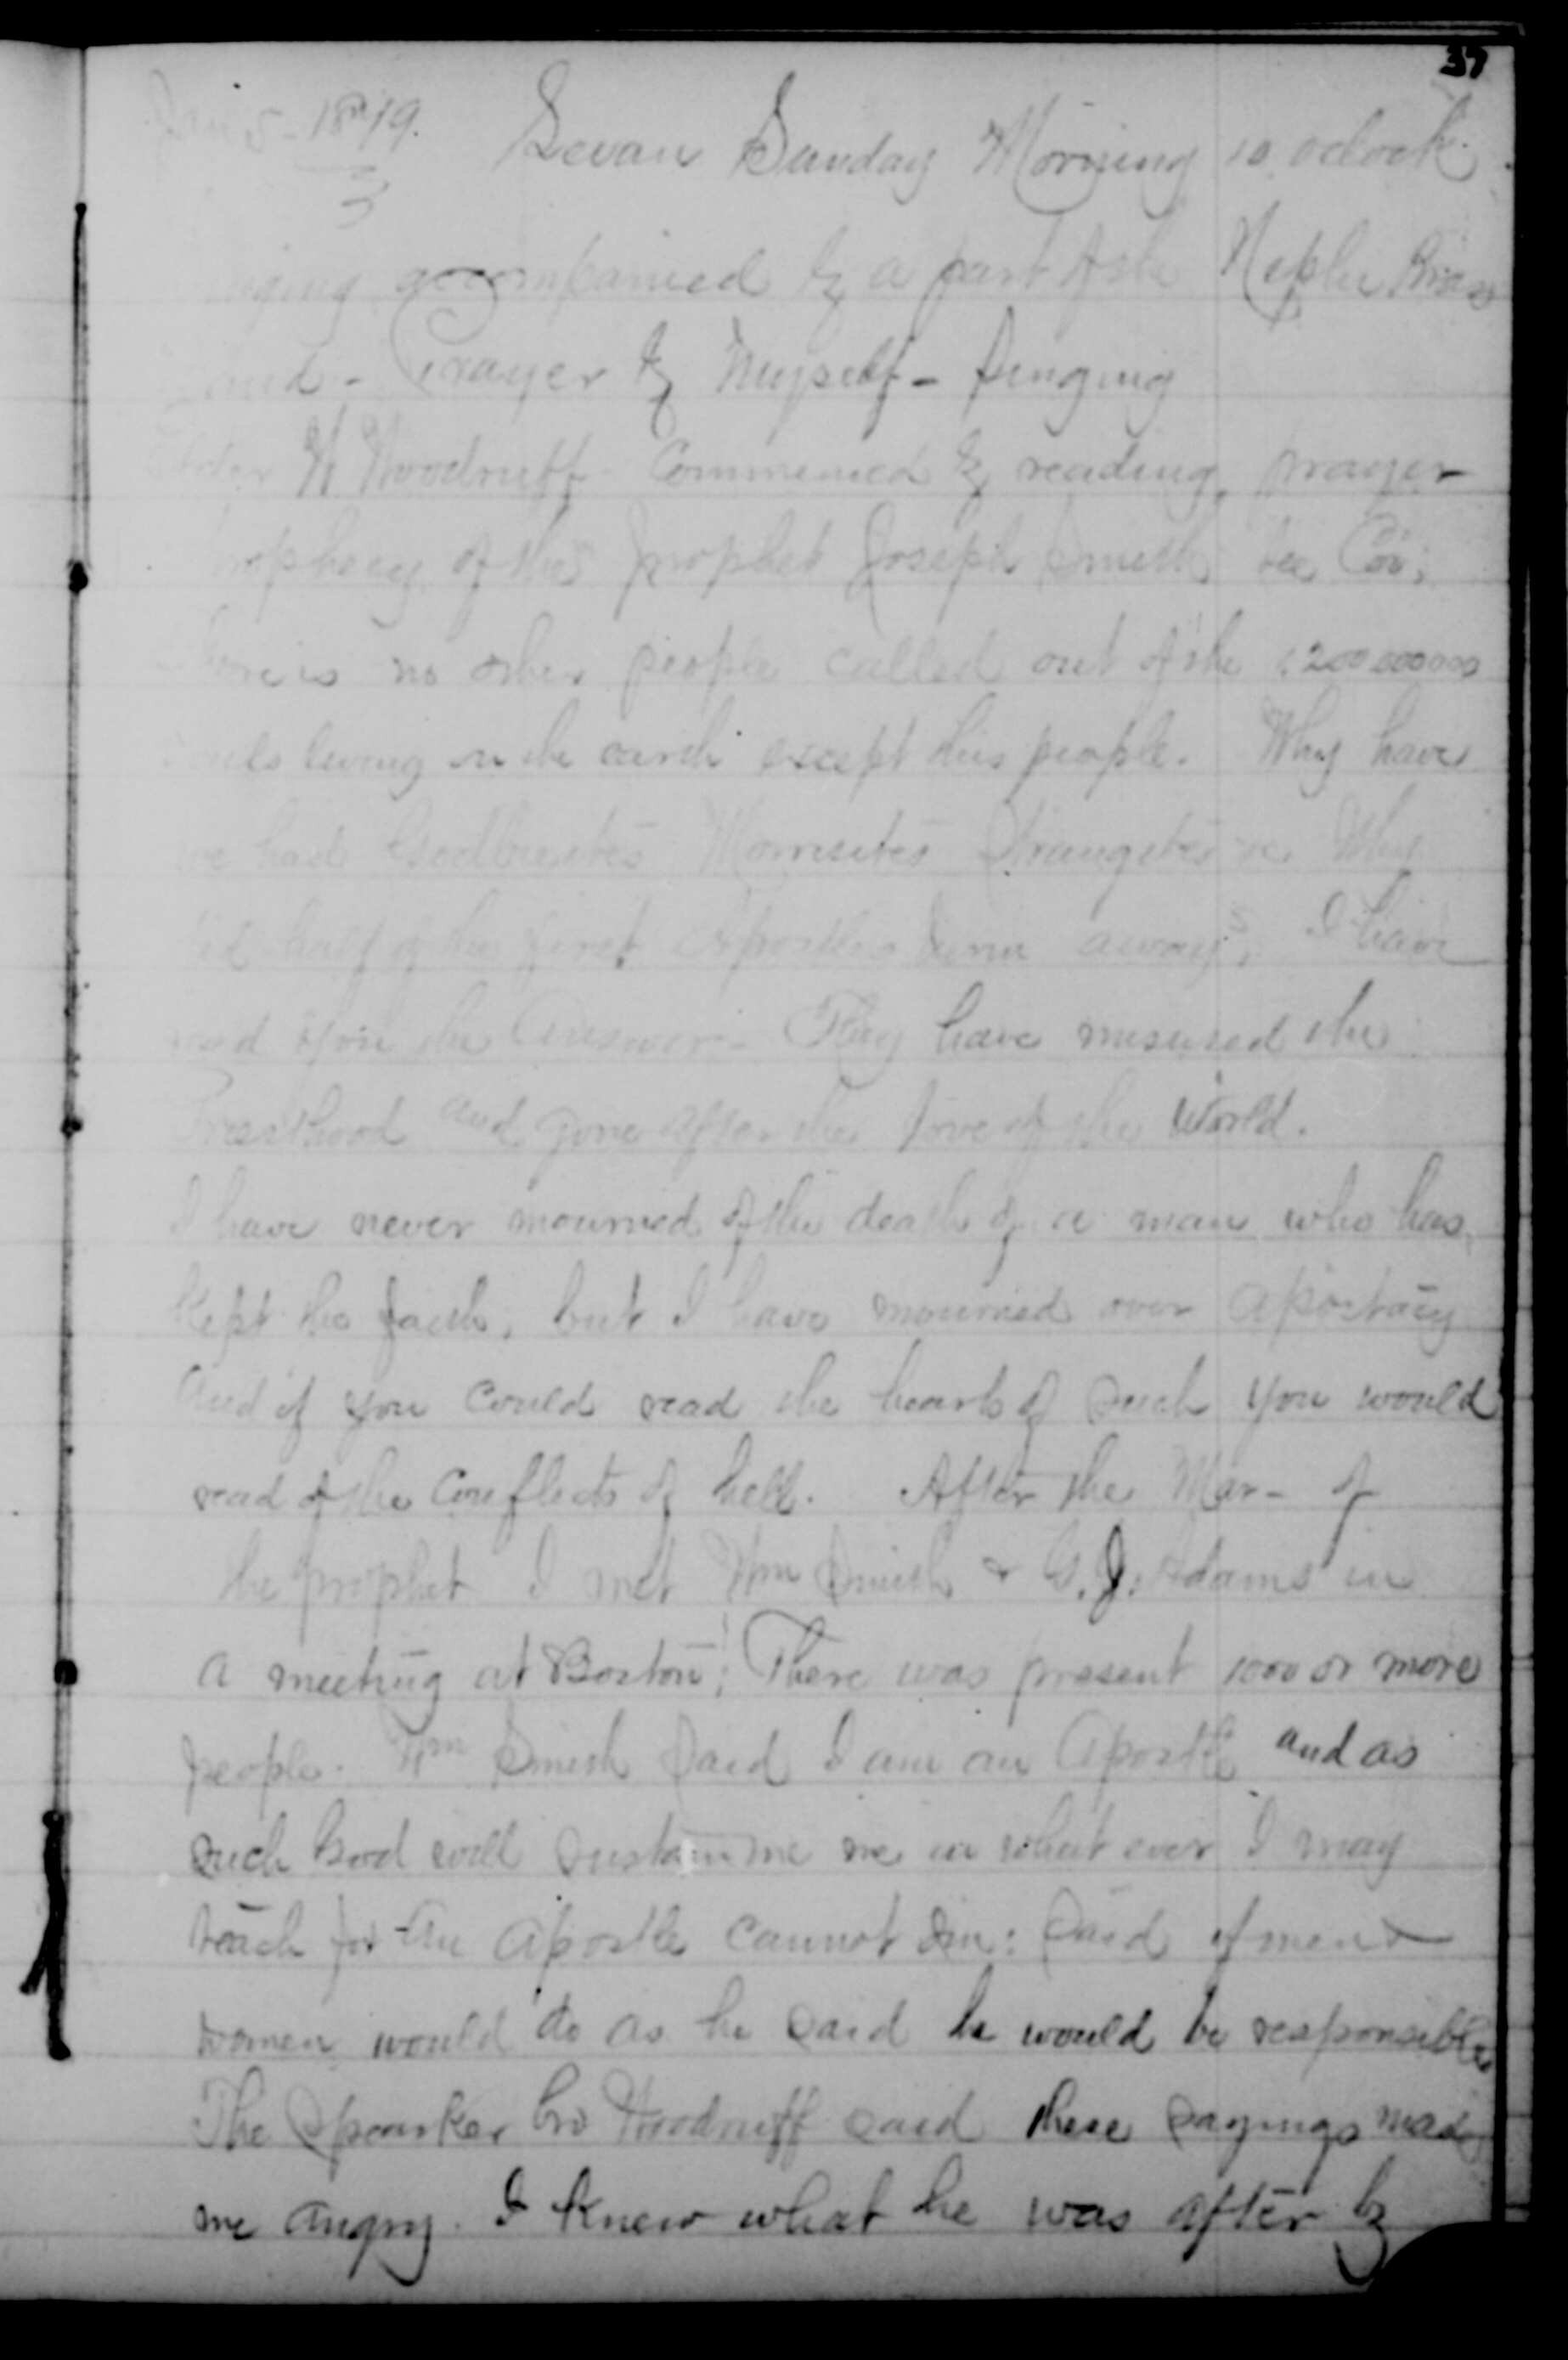 37
Jan 5 - 1879. Levan Sunday Morning 10 oclock.
singing accompanied by a part of the Nephi Brass
Band - Prayer by Myself - Singing
Elder W Woodruff Commenced by reading prayer
prophecy of the prophet Joseph Smith Doc Cov;
There is no other people called out of the 1200000000
souls living on the earth except this people. Why have
we had Godbeites Morrisites Strangites &c Why
did half of the first Apostles turn away? I have
read you the Answer - They have misused the
Priesthood and gone after the love of the World.
I have never mourned of the death of a man who has
kept the faith, but I have mourned over apostacy
And if you could read the hearts of such you would
read of the Conflicts of hell. After the Mar- of
the prophet I met Wm Smith & G. J. Adams in
a meeting at Boston; There was present 1000 or more
people. Wm Smith Said I am an Apostle and as
such God will sustain me me in what ever I may
teach for An Apostle cannot Sin: Said if men &
women would do as he said he would be responsible
The Speaker bro Woodruff said these sayings made
me angry. I knew what he was after by